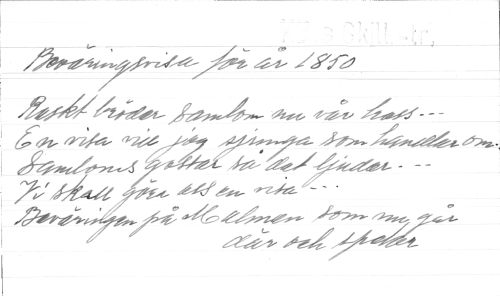 Skill.tr.
Beväringsvisa för år 1850
Raskt bröder samlom nu vår hass---
En visa vill jag sjunga som handlar om--
Samloms gossar så det ljuder---
Vi skall göra oss en visa---
Beväringen på Malmen som nu går
där och spelar